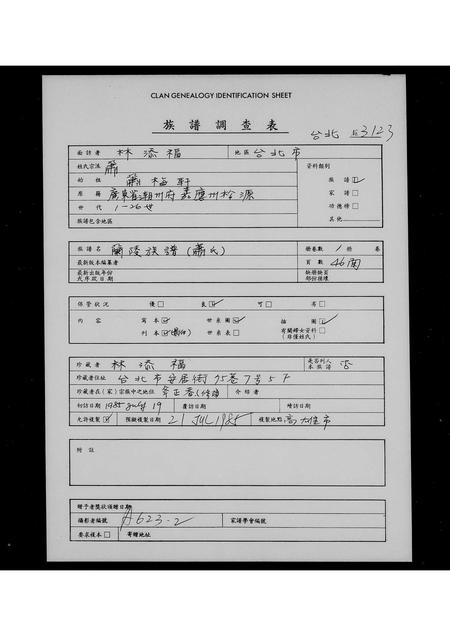 CLAN GENEALOGY IDENTIFICATION SHEET
族譜調查表
台北 3123
面訪者 林添福 地區 台北市
姓氏宗派 蕭 資料類別
始祖 蕭梅軒 族譜☑
原籍 廣東省潮州府嘉應州松源 家譜□
世代 1-26世 功德榜□
族譜包含地區 其他
族譜名 蘭陵族譜(蕭氏) 冊卷數 1冊 卷
最新版本編纂者 頁數 46面
最新出版年份 缺冊缺頁
或序跋日期 部份推壞
保管狀況 優□ 良☑ 可□ 劣□
內容 寫本☑ 世系圖☑ 插圖☑
刊本□ 世系表□ 有關婦女資料□
(非僅姓氏)
珍藏者 林添福 是否列入本族譜 否
珍藏者住址 台北市安居街95巷7号5F
珍藏者在(家)宗族中之地位 介紹者
初訪日期 1985 July 19 覆訪日期 峰訪日期
允許複製☑ 預擬複製日期 21 JUL 1985 複製地點 高雄市
附註
贈予者獎狀頒贈日期
攝影者編號 A623-2 家譜學會編號
要求複本□ 寄贈地址